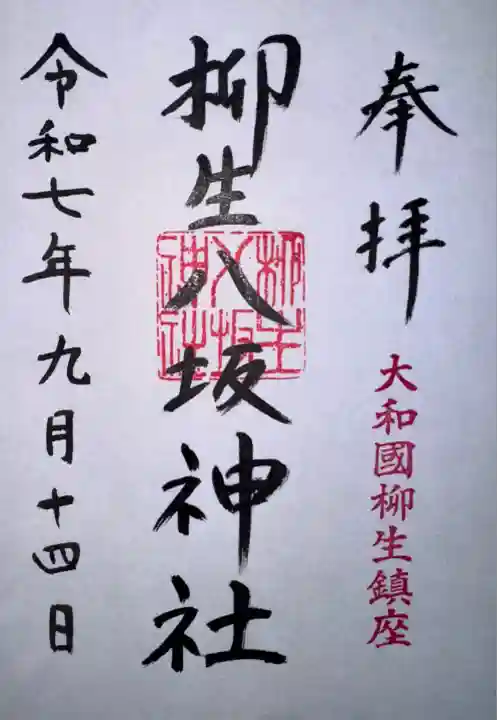 奉拝
大和國柳生鎮座
柳生八坂神社
柳生
八坂
神社
令和七年九月十四日